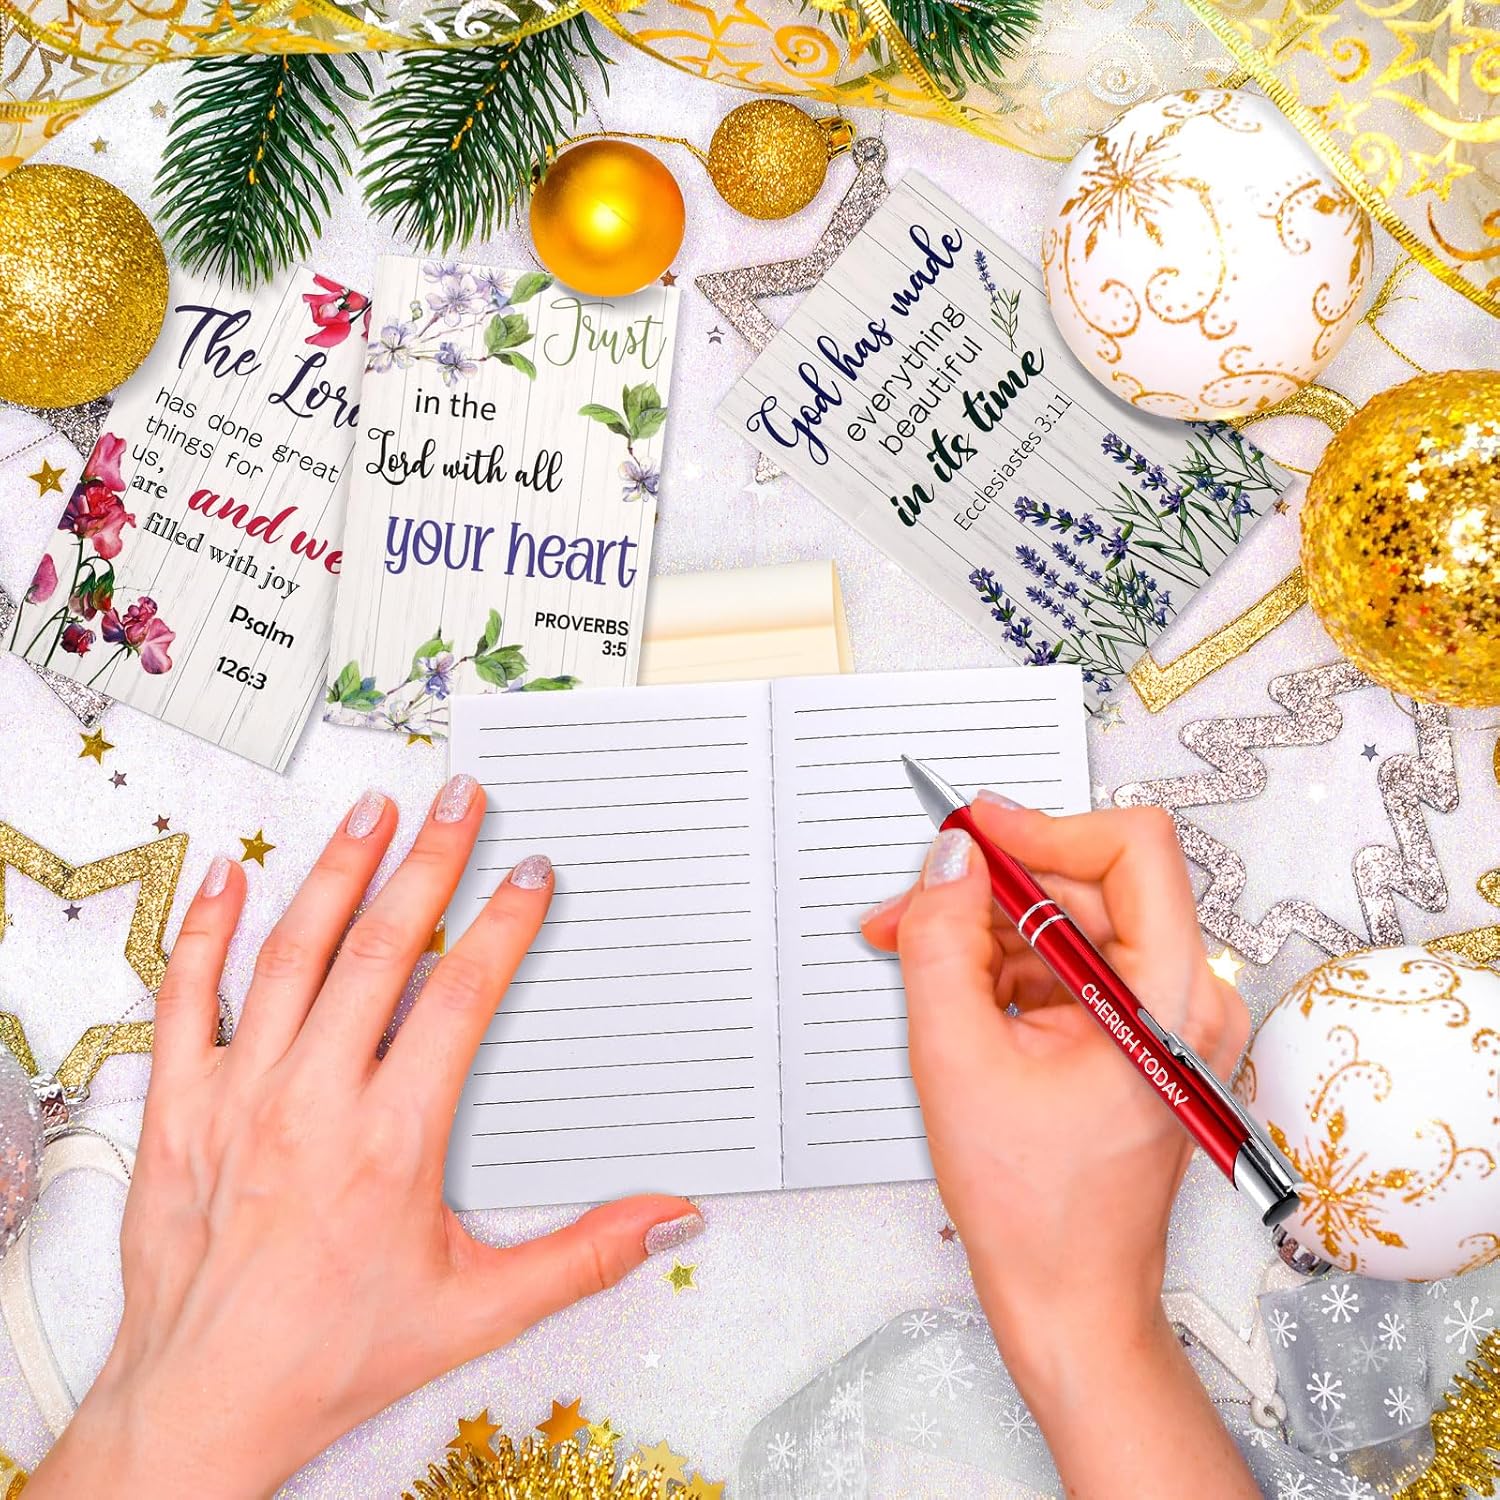 The
Lor
has done great
things for
us,
are and we
filled with joy
Psalm
126:3
Trust
in the
Lord with all
your heart
PROVERBS
3:5
God has made
everything
beautiful
in its time
Ecclesiastes 3:11
CHERISH TODAY